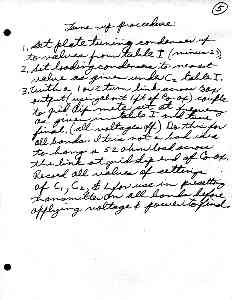 5
Tune up procedure
1. Set plate tuning condenser
to values from table I (minus 2)
2. Set loading condenser to nearest
value as given under C2 table I.
3. With a 1 or 2 turn link across 52Ω
output (using about 1 ft of Co-ax) couple
to grid dip meter, set
as given in table I and tune
final. (All voltages off) Do this for
all bands. It is not a bad idea
to hang a 52 ohm load across
the link at grid dip end of Co-ax.
Record all values of settings
of C1, C2, & L for use in presetting
transmitter on all bands before
applying voltage & power to final